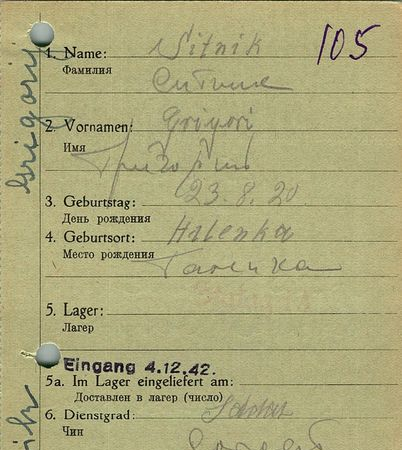 105
1. Name: Sitnik
Фамилия Ситник
2. Vornamen: Grigori
Имя Григорий
3. Geburtstag: 23.8.20
День рождения
4. Geburtsort:
Место рождения
5. Lager:
Лагер
Eingang 4.12.42.
5a. Im Lager eingeliefert am:
Доставлен в лагер (число)
6. Dienstgrad: Soldat
Чин Солдат
Grigorij